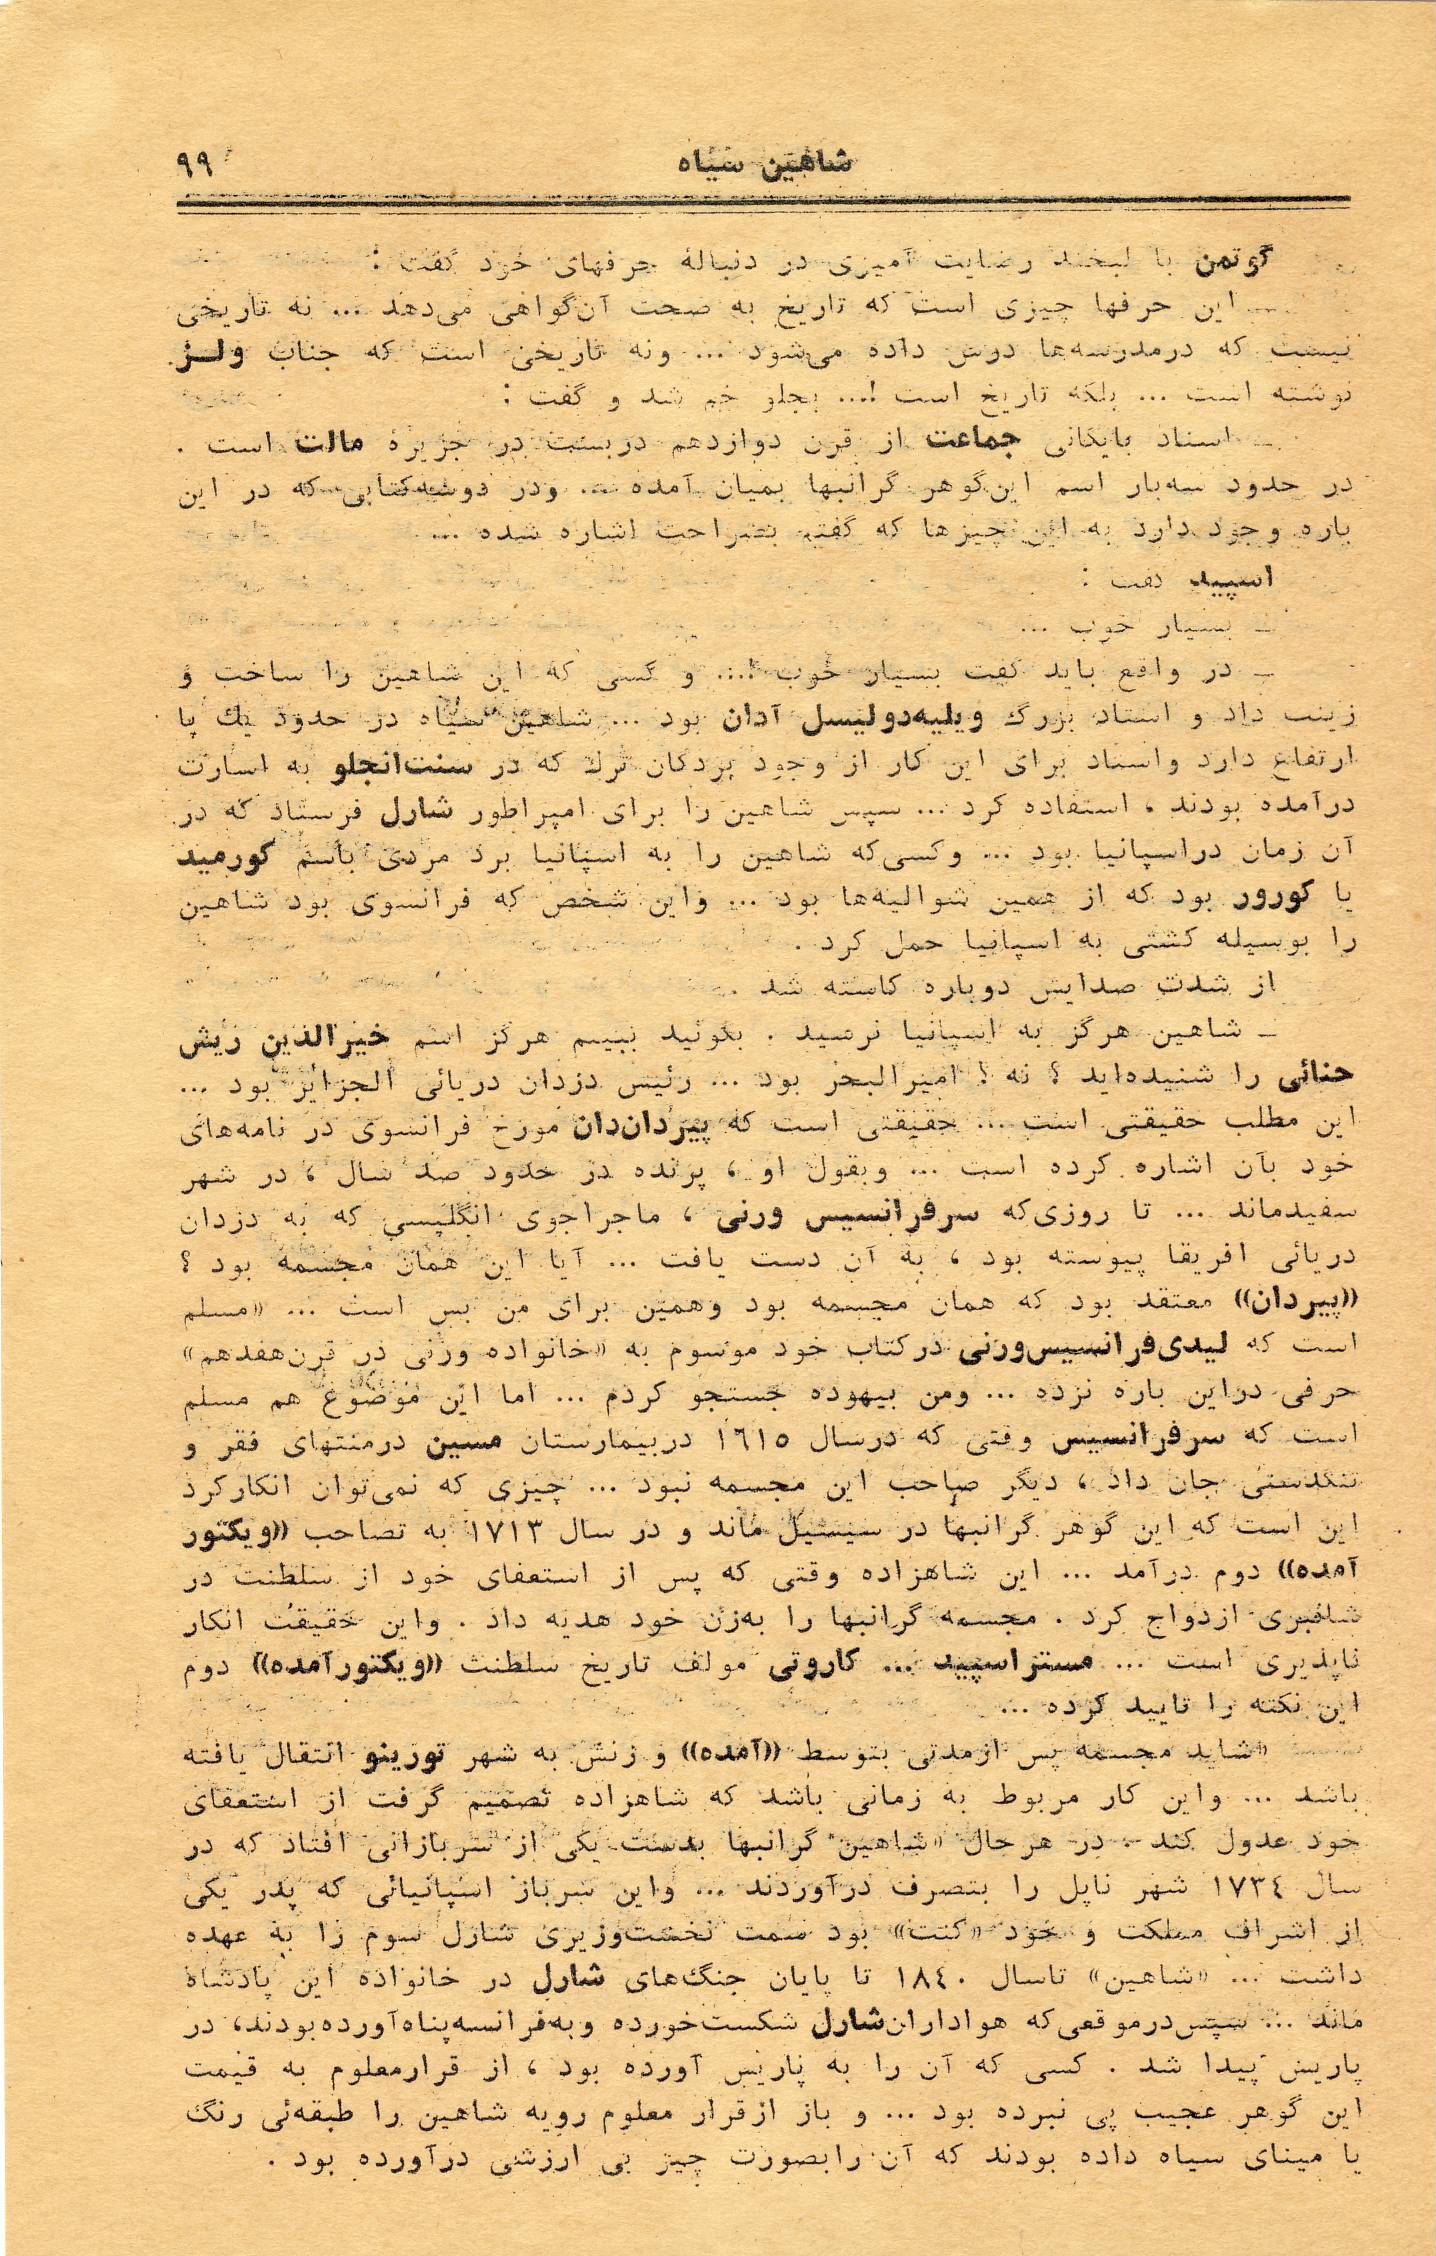 شاهین سیاه ۹۹
گوتمن با لبخند رضایت آمیزی در دنبالهٔ حرفهای خود گفت :
ــ این حرفها چیزی است که تاریخ به صحت آن‌گواهی می‌دهد ... نه تاریخی
نیست که درمدرسه‌ها درس داده می‌شود ... ونه تاریخی است که جناب ولـز
نوشته است ... بلکه تاریخ است !... بجلو خم شد و گفت :
ــ اسناد بایگانی جماعت از قرن دوازدهم دربست در جزیرهٔ مالت است .
در حدود سه‌بار اسم این‌گوهر گرانبها بمیان آمده ... ودر دوسه‌کتابی که در این
باره وجود دارد به این چیزها که گفتم بصراحت اشاره شده ...
اسپید گفت :
ــ بسیار خوب ...
ــ در واقع باید گفت بسیار خوب !... و کسی که این شاهین را ساخت و
زینت داد و استاد بزرگ ویلیه‌دولیسل آدان بود ... شاهین سیاه در حدود یك پا
ارتفاع دارد واستاد برای این کار از وجود بردگان ترك که در سنت‌انجلو به اسارت
درآمده بودند ، استفاده کرد ... سپس شاهین را برای امپراطور شارل فرستاد که در
آن زمان دراسپانیا بود ... وکسی‌که شاهین را به اسپانیا برد مردی باسم کورمید
یا کورور بود که از همین شوالیه‌ها بود ... واین شخص که فرانسوی بود شاهین
را بوسیله کشتی به اسپانیا حمل کرد .
از شدت صدایش دوباره کاسته شد .
ــ شاهین هرگز به اسپانیا نرسید . بگوئید ببینم هرگز اسم خیرالدین ریش
حنائی را شنیده‌اید ؟ نه ؟ امیرالبحر بود ... رئیس دزدان دریائی الجزایر بود ...
این مطلب حقیقتی است ... حقیقتی است که پیردان‌دان مورخ فرانسوی در نامه‌های
خود بآن اشاره کرده است ... وبقول او ، پرنده در حدود صد سال ، در شهر
سفیدماند ... تا روزی‌که سرفرانسیس ورنی ، ماجراجوی انگلیسی که به دزدان
دریائی افریقا پیوسته بود ، به آن دست یافت ... آیا این همان مجسمه بود ؟
«پیردان» معتقد بود که همان مجسمه بود وهمین برای من بس است ... «مسلم
است که لیدی‌فرانسیس‌ورنی درکتاب خود موسوم به «خانواده ورنی در قرن‌هفدهم»
حرفی دراین باره نزده ... ومن بیهوده جستجو کردم ... اما این موضوع هم مسلم
است که سرفرانسیس وقتی که درسال ۱٦۱٥ دربیمارستان مسین درمنتهای فقر و
تنگدستی جان داد ، دیگر صاحب این مجسمه نبود ... چیزی که نمی‌توان انکارکرد
این است که این گوهر گرانبها در سیسیل ماند و در سال ۱۷۱۳ به تصاحب «ویکتور
آمده» دوم درآمد ... این شاهزاده وقتی که پس از استعفای خود از سلطنت در
شامبری ازدواج کرد . مجسمه گرانبها را به‌زن خود هدیه داد . واین حقیقت انکار
ناپذیری است ... مستراسپید ... کاروتی مولف تاریخ سلطنت «ویکتورآمده» دوم
این نکته را تایید کرده ...
«شاید مجسمه پس ازمدتی بتوسط «آمده» و زنش به شهر تورینو انتقال یافته
باشد ... واین کار مربوط به زمانی باشد که شاهزاده تصمیم گرفت از استعفای
خود عدول کند . در هرحال «شاهین» گرانبها بدست یکی از سربازانی افتاد که در
سال ۱۷۳٤ شهر ناپل را بتصرف درآوردند ... واین سرباز اسپانیائی که پدر یکی
از اشراف مملکت و خود «کنت» بود سمت نخست‌وزیری شارل سوم را به عهده
داشت ... «شاهین» تاسال ۱۸٤۰ تا پایان جنگ‌های شارل در خانواده این پادشاه
ماند ... سپس‌درموقعی‌که هواداران‌شارل شکست‌خورده وبه‌فرانسه‌پناه‌آورده‌بودند، در
پاریس پیدا شد . کسی که آن را به پاریس آورده بود ، از قرارمعلوم به قیمت
این گوهر عجیب پی نبرده بود ... و باز ازقرار معلوم رویه شاهین را طبقه‌ئی رنگ
یا مینای سیاه داده بودند که آن رابصورت چیز بی ارزشی درآورده بود .